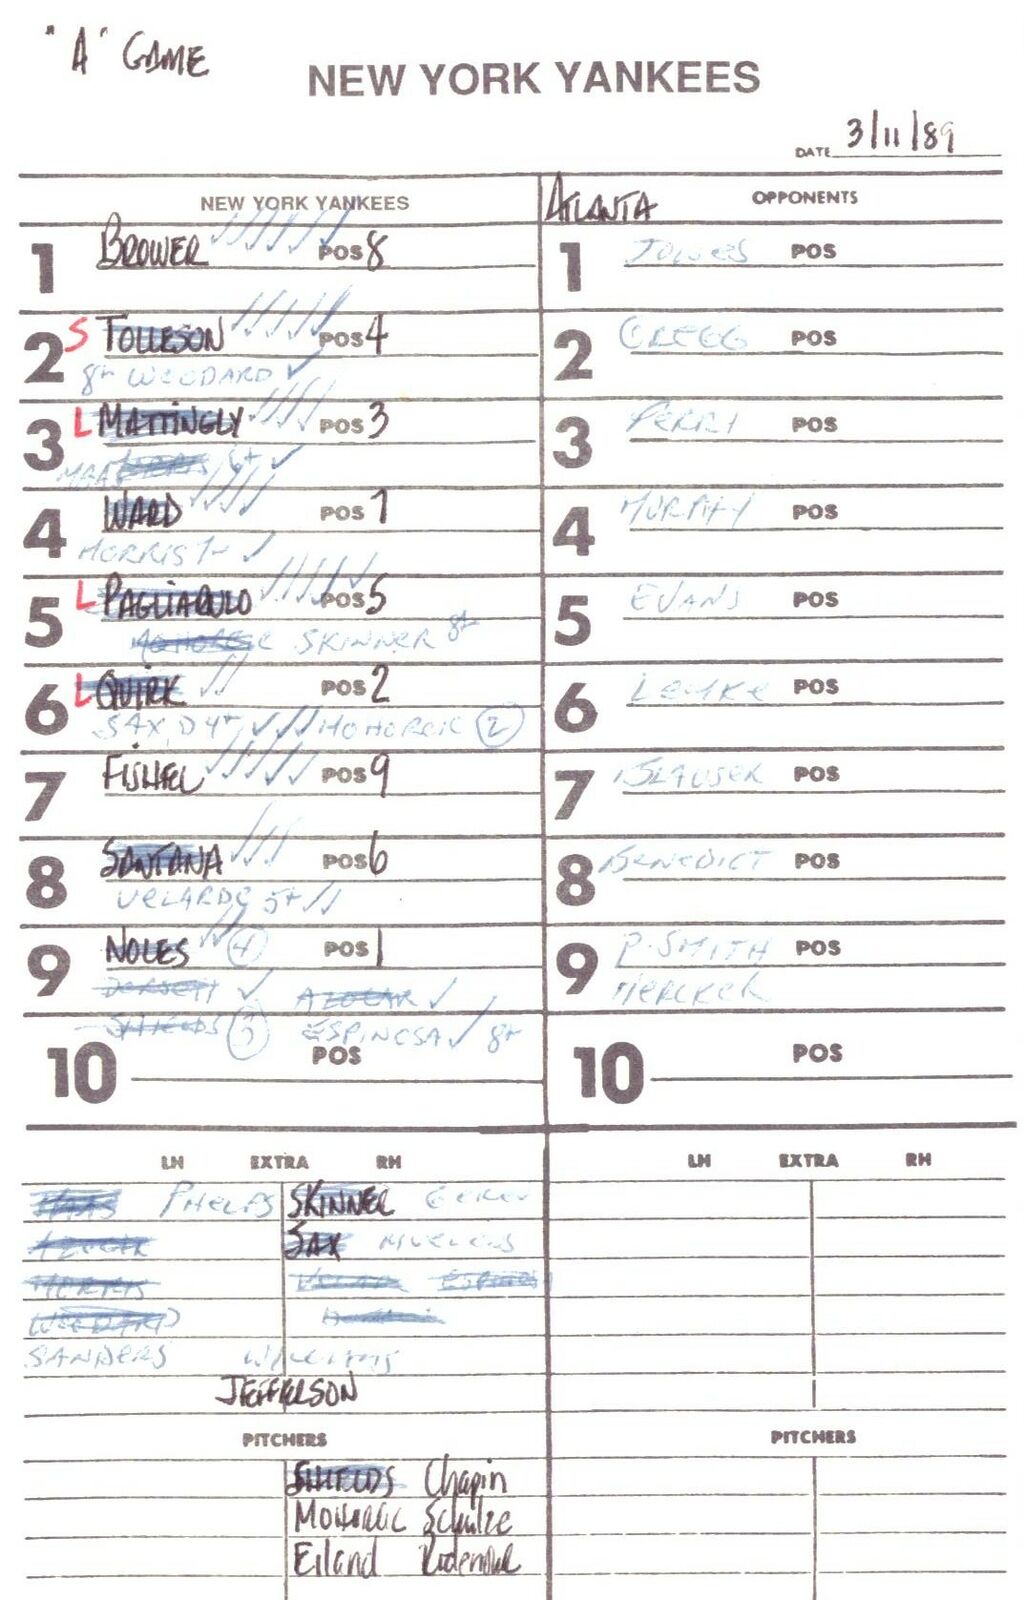 "A" GAME
NEW YORK YANKEES
DATE 3/11/89
NEW YORK YANKEES
ATLANTA OPPONENTS
1 BROWER POS 8
1 JONES POS
2 S TOLLESON POS 4
8+ WOODARD
2 GREGG POS
3 L MATTINGLY POS 3
MAAS 6+
3 PERRY POS
4 WARD POS 7
MORRIS 7-
4 MURPHY POS
5 L PAGLIARULO POS 5
MOHORCIC SKINNER 8+
5 EVANS POS
6 L QUIRK POS 2
SAX, D 4+ MOHORCIC 2
6 LEMKE POS
7 FISHEL POS 9
7 BLAUSER POS
8 SANTANA POS 6
VELARDE 5+
8 BENEDICT POS
9 NOLES 4 POS 1
DORSETT AZOCAR
SHIELDS 3 ESPINOSA 8+
9 P. SMITH POS
MERCKER
10 POS
10 POS
LH EXTRA RH
LH EXTRA RH
MAAS PHELPS SKINNER GEREN
AZOCAR SAX
MORRIS VELAR ESPINOS
WOODARD
SANDERS WILLIAMS
JEFFERSON
PITCHERS
PITCHERS
SHIELDS Chapin
MOHORCIC Schulze
Eiland